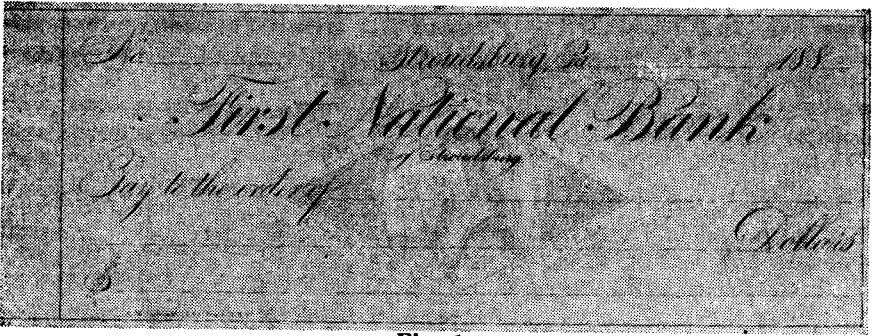 No Stroudsburg, Pa 188
First National Bank
of Stroudsburg
Pay to the order of
Dollars
$